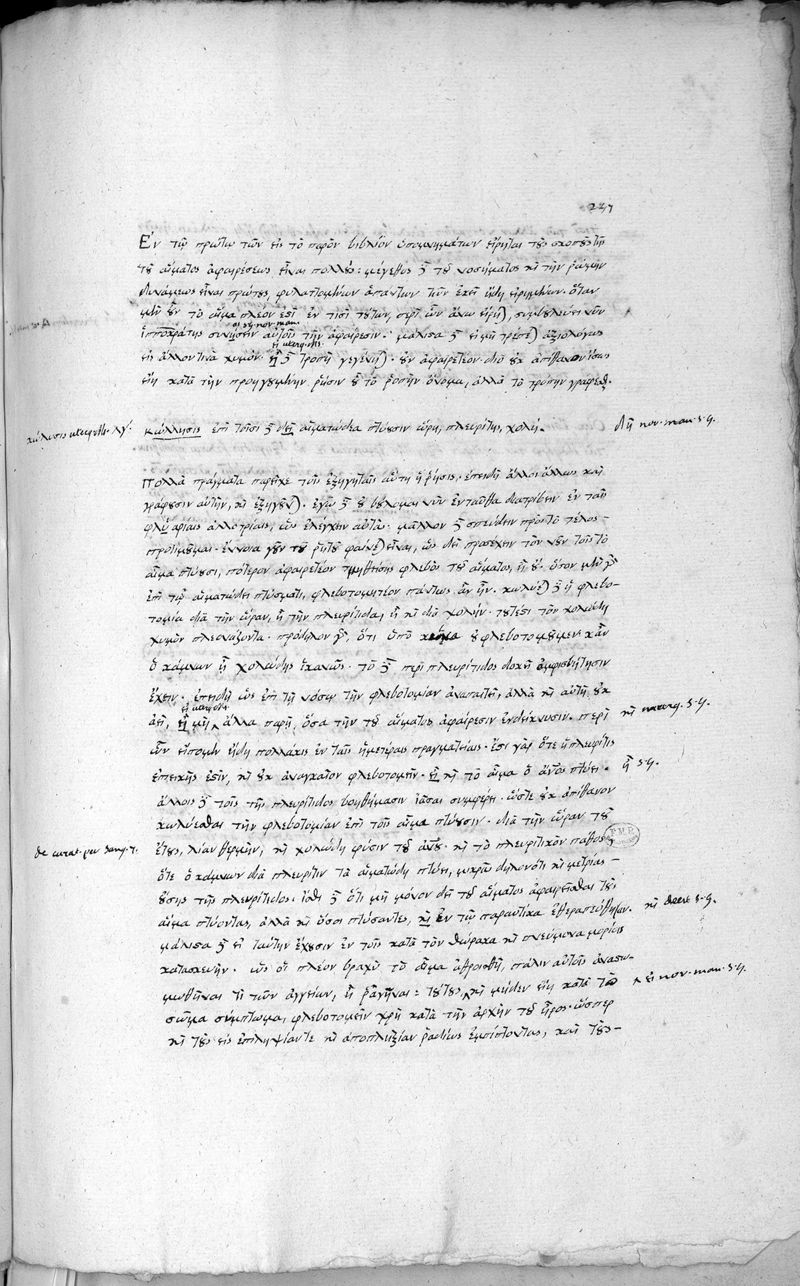 227
Ἐν τῷ πρώτῳ τῶν εἰς τὸ παρὸν βιβλίον ὑπομνημάτων εἴρηται τοὺς σκοποὺς τῆς
τοῦ αἵματος ἀφαιρέσεως εἶναι πολλούς· μέγεθος δὲ τοῦ νοσήματος καὶ τὴν ῥώμην
δυνάμεως εἶναι πρώτους, φυλαττομένων ἁπάντων τῶν ἐκεῖ ἤδη εἰρημένων. ὅταν
μὲν οὖν τὸ αἷμα πλέον ἐστὶ ἔν τισι τούτων, περὶ ὧν ἄνω εἴρηται, συμβουλεύει νῦν
Ἱπποκράτης αὐτοῖς τὴν ἀφαίρεσιν· μάλιστα δὲ εἰ μὴ τρέπεται ἀξιολόγως
εἰς ἄλλον τινὰ χυμόν. εἰ δὲ τροπὴ γεγένηται, οὐκ ἀφαιρετέον. διὸ οὐκ ἀπίθανον ἴσως
εἴη κατὰ τὴν προηγουμένην ῥῆσιν οὐ τὸ ῥοπὴν ὄνομα, ἀλλὰ τὸ τροπὴν γράφεσθαι.
κώλυσις κώλλησις ἐπὶ τοῖσι δὲ δεῖ αἱματώδεα πτύουσιν ὥρη, πλευρῖτις, χολή. δὴ nov. man. s.g.
Πολλὰ πράγματα παρεῖχε τοῖς ἐξηγηταῖς αὕτη ἡ ῥῆσις· ἐπειδὴ ἄλλοι ἄλλως καὶ
γράφουσιν αὐτὴν, καὶ ἐξηγοῦνται. ἐγὼ δὲ οὐ βούλομαι νῦν ἐνταῦθα διατρίβειν ἐν ταῖς
φλυαρίαις ἀλλοτρίαις, ὧν ἐλέγχειν αὐτὰς· μᾶλλον δὲ σπεύδειν πρὸς τὸ τέλος
προτιμῶμαι. ἔννοια γοῦν τοῦ ῥητοῦ φαίνεται εἶναι, ὡς δεῖ προσέχειν τὸν νοῦν τοῖς τὸ
αἷμα πτύουσι, πότερον ἀφαιρετέον τμηθείσης φλεβὸς τοῦ αἵματος, ἢ οὔ. ὅσον μὲν γὰρ
ἐπὶ τῷ αἱματώδει πτύσματι, φλεβοτομητέον πάντως ἂν ἦν. κωλύεται δὲ ἡ φλεβο-
τομία διὰ τὴν ὥραν, ἢ τὴν πλευρίτιδα, ἢ καὶ διὰ χολήν· τουτέστι τὸν χολώδη
χυμὸν πλεονάζοντα. πρόδηλον γὰρ, ὅτι ὑπὸ οὐ φλεβοτομοῦμεν κἂν
ὁ κάμνων ᾖ χολώδης ἱκανῶς. τὸ δὲ περὶ πλευρίτιδος δοκεῖ ἀμφισβήτησιν
ἔχειν. ἐπειδὴ ὡς ἐπὶ τῇ νόσῳ τὴν φλεβοτομίαν ἀναπαιτεῖ, ἀλλὰ καὶ αὐτὴ οὐκ
ἀεὶ, εἰ μὴ ἄλλα παρῇ, ὅσα τὴν τοῦ αἵματος ἀφαίρεσιν ἐνδείκνυσιν. περὶ
ὧν εἴπομεν ἤδη πολλάκις ἐν ταῖς ἡμετέραις πραγματείαις. ἔστι γὰρ ὅτε ἡ πλευρῖτις
ἐπιεικής ἐστιν, καὶ οὐκ ἀναγκαῖον φλεβοτομεῖν. εἰ καὶ τὸ αἷμα ὁ ἄνθρωπος πτύει. ἢ s.g.
ἄλλοις δὲ τοῖς τῆς πλευρίτιδος βοηθήμασιν ἰᾶσθαι συμφέρει. ὥστε οὐκ ἀπίθανον
κωλύεσθαι τὴν φλεβοτομίαν ἐπὶ τοῖς αἷμα πτύουσιν. διὰ τὴν ὥραν τοῦ
ἔτους, λίαν θερμὴν, καὶ χολώδη φύσιν τοῦ ἀνθρώπου· καὶ τὸ πλευριτικὸν πάθος,
ὅτε ὁ κάμνων διὰ πλευρῖτιν τὰ αἱματώδη πτύει, μικρᾶς δηλονότι καὶ μετρίας
οὔσης τῆς πλευρίτιδος. ἴσθι δὲ ὅτι μὴ μόνον δεῖ τοῦ αἵματος ἀφαιρεῖσθαι τοὺς
αἷμα πτύοντας, ἀλλὰ καὶ ὅσοι πτύσαντες, καὶ ἐν τῷ παραυτίκα ἐθεραπεύθησαν.
μάλιστα δὲ εἰ ταύτην ἔχουσιν ἐν τοῖς κατὰ τὸν θώρακα καὶ πνεύμονα μορίοις
κατασκευήν. ὡς εἰ πλέον βραχὺ τὸ αἷμα ἀθροισθῇ, πάλιν αὐτοῖς ἀναστο-
μωθῆναί τι τῶν ἀγγείων, ἢ ῥαγῆναι· τούτους, καὶ μηδὲν εἴη κατὰ τὸ
σῶμα σύμπτωμα, φλεβοτομεῖν χρὴ κατὰ τὴν ἀρχὴν τοῦ ἦρος· ὥσπερ
καὶ τοὺς εἰς ἐπιληψίαν τε καὶ ἀποπληξίαν ῥᾳδίως ἐμπίπτοντας, καὶ τοὺς